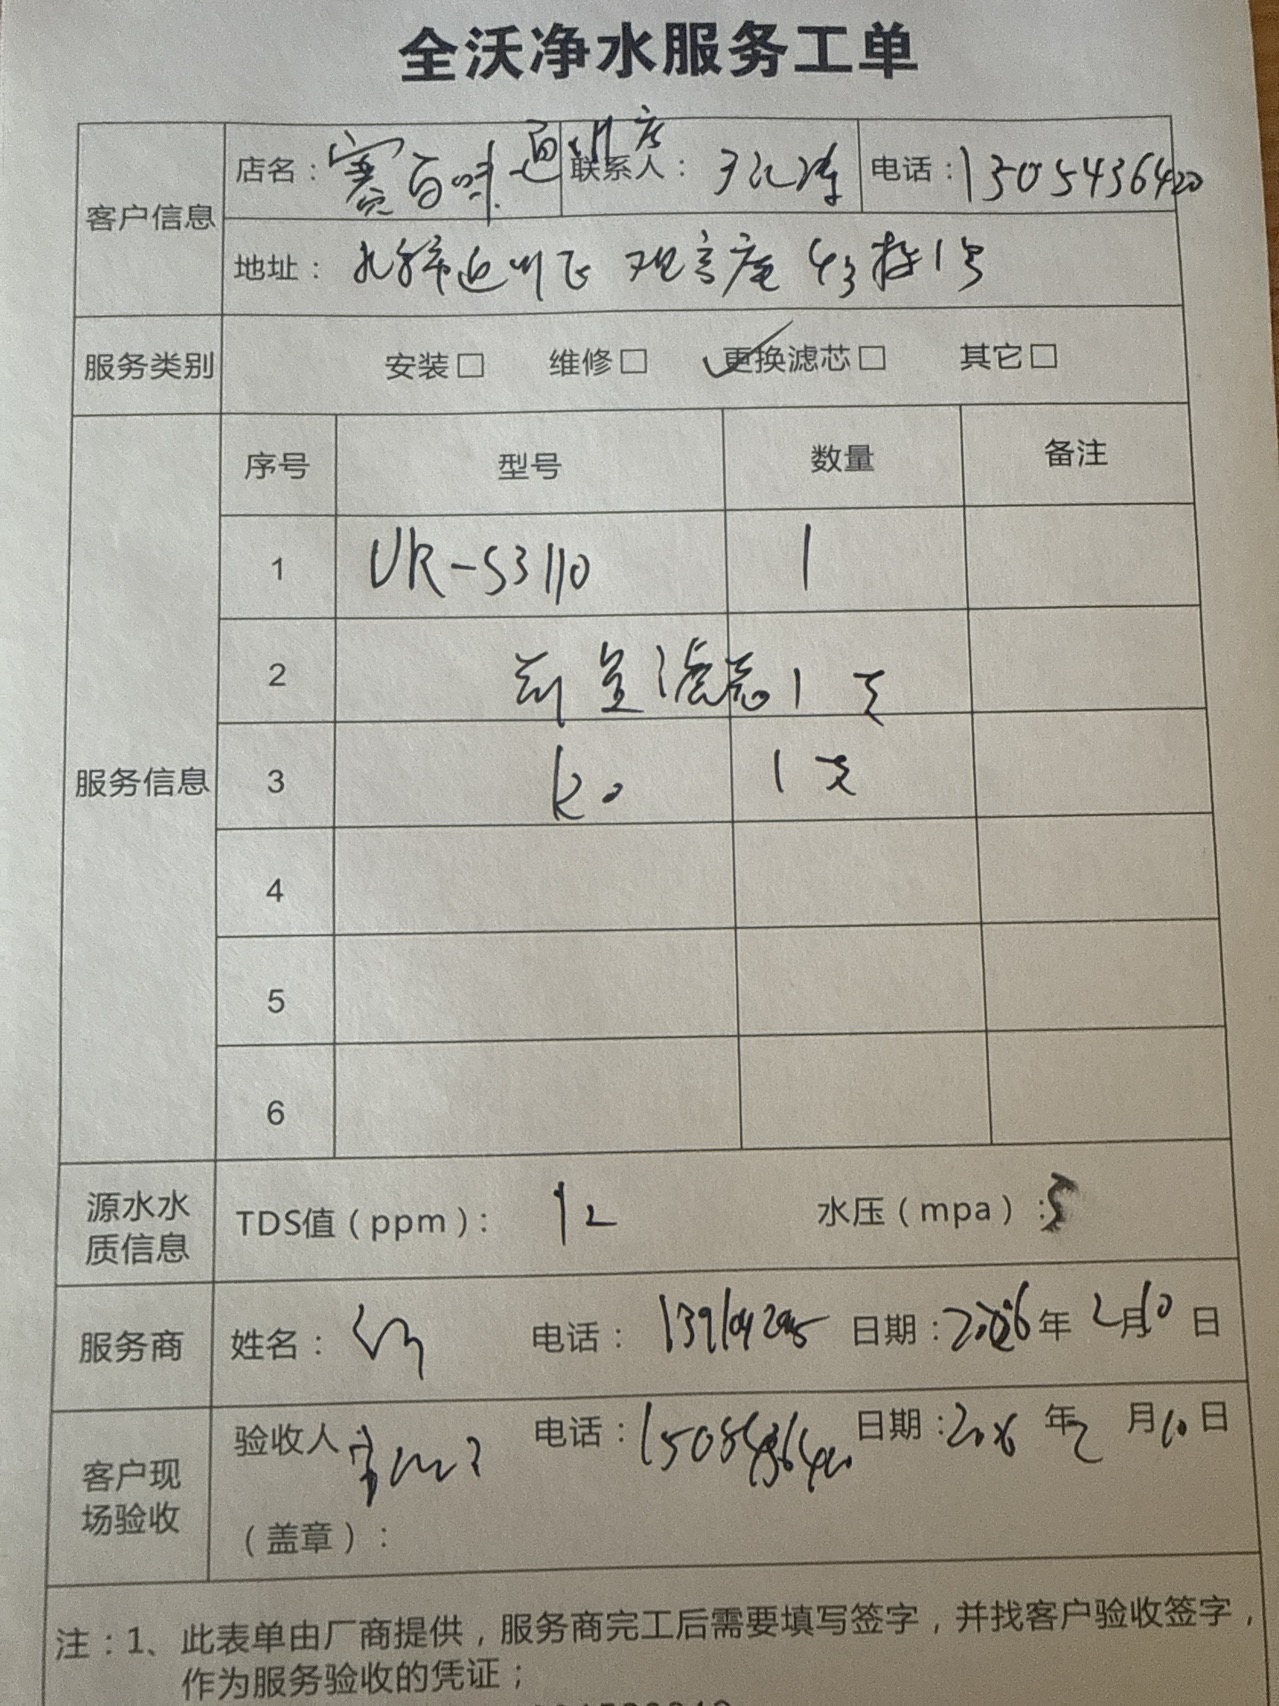 全沃净水服务工单
客户信息
店名：赛百味通州店 联系人： 电话：15054436420
地址： 通州区 观音庵 43栋1号
服务类别 安装□ 维修□ 更换滤芯□ 其它□
服务信息
序号 型号 数量 备注
1 UR-S3110 1
2 前置滤芯 1支
3 1支
4
5
6
源水水质信息
TDS值（ppm）： 92 水压（mpa）：
服务商
姓名： 电话： 日期：2026年2月10日
客户现场验收
验收人： 电话： 日期：2026年2月10日
（盖章）：
注：1、此表单由厂商提供，服务商完工后需要填写签字，并找客户验收签字，
作为服务验收的凭证；